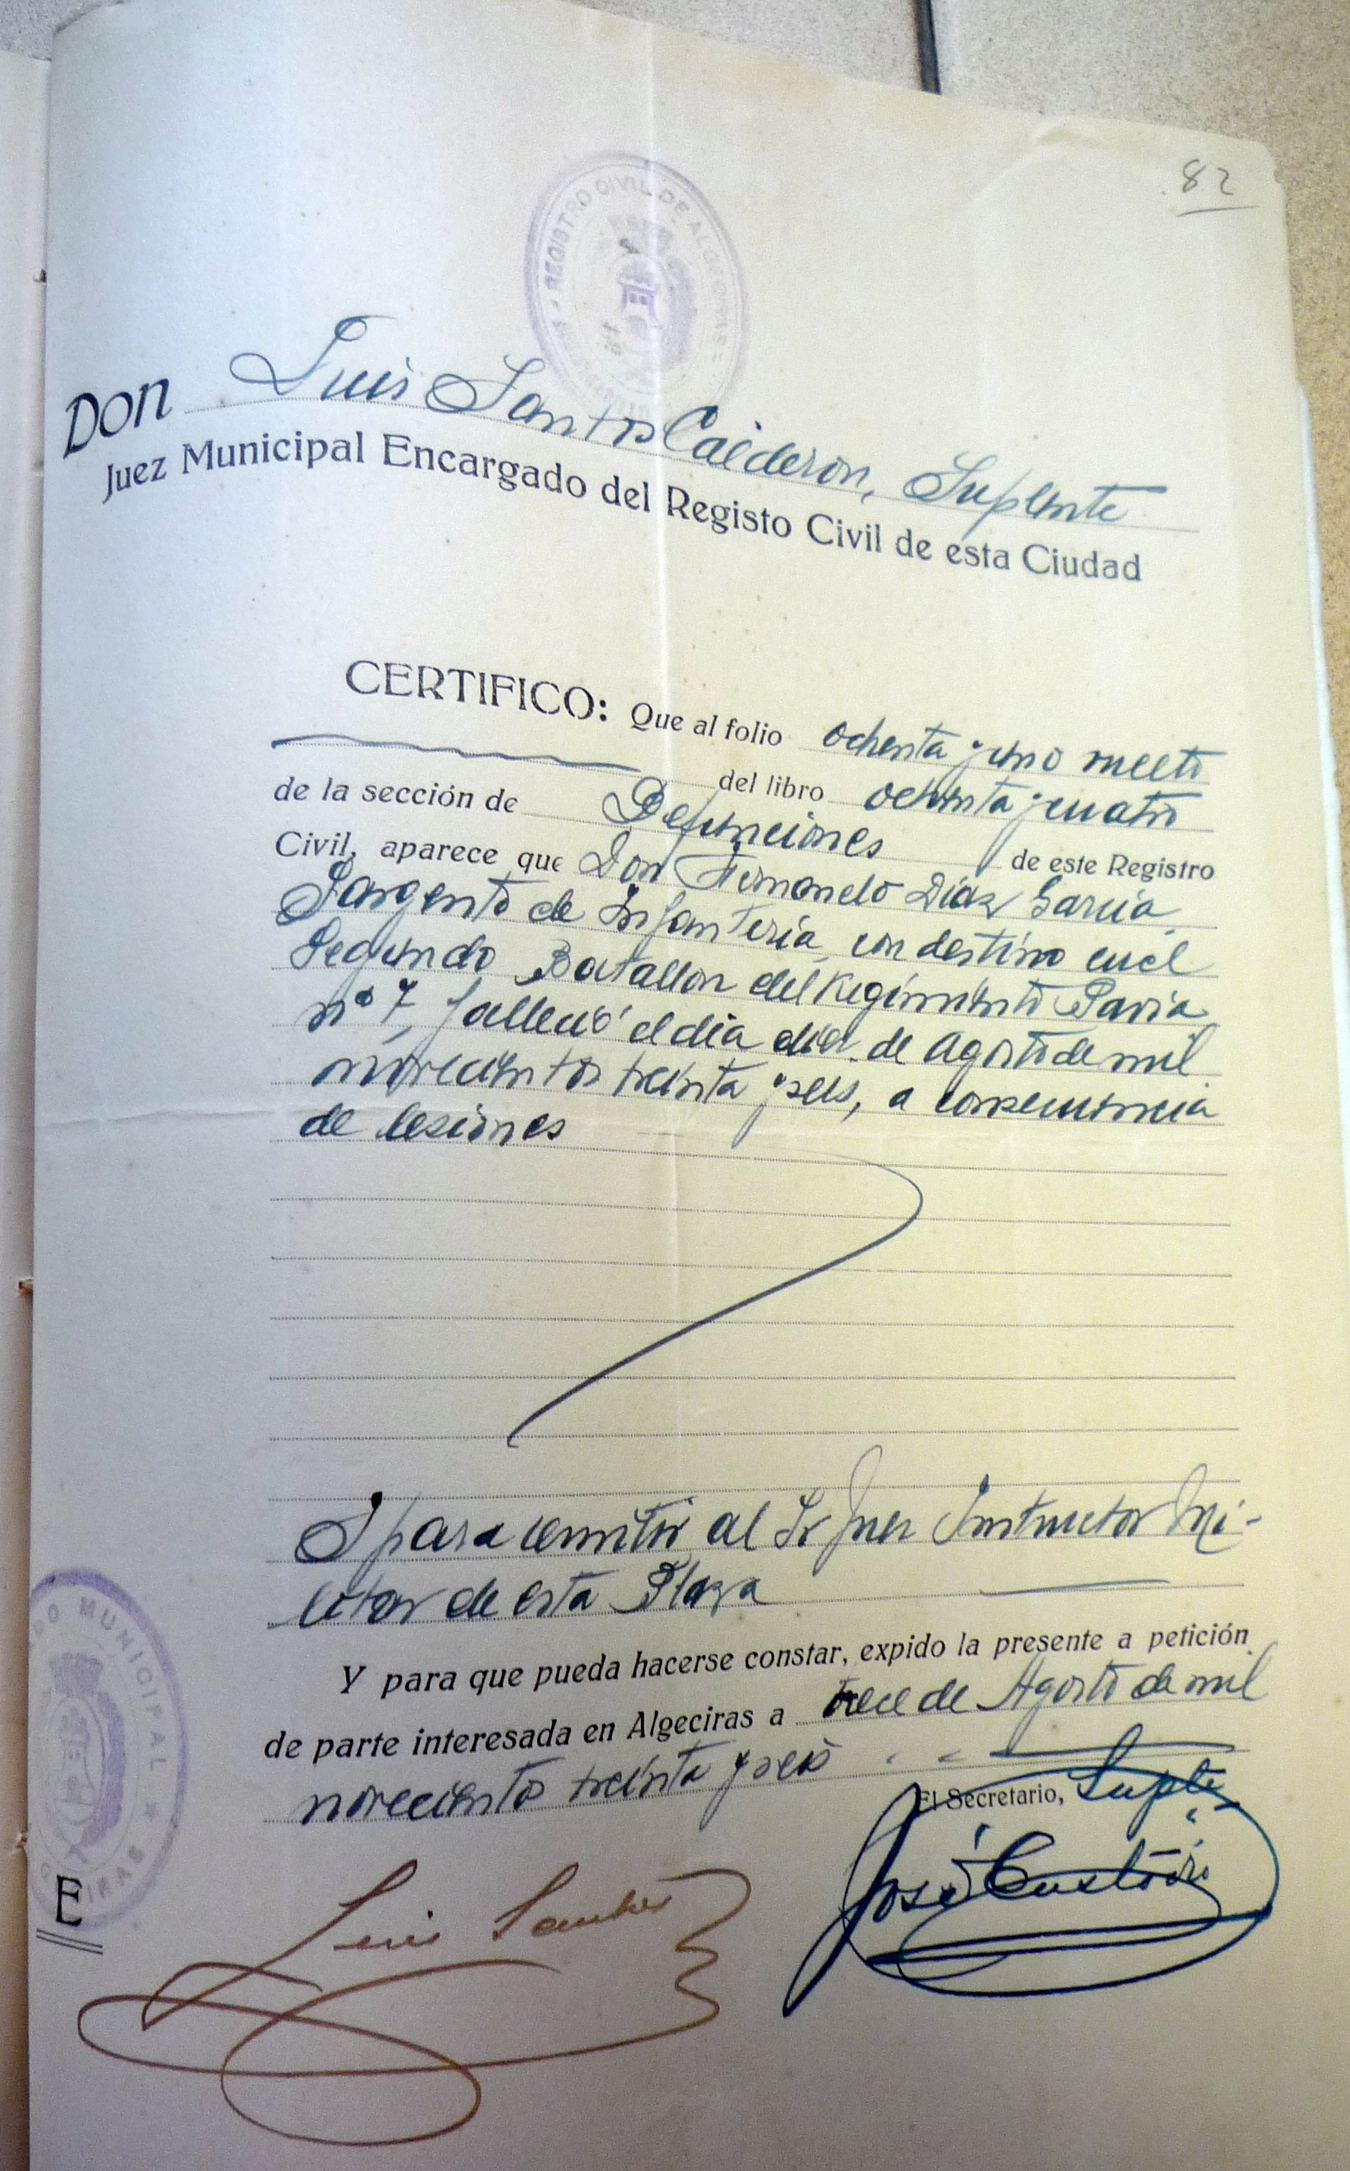 82
REGISTRO CIVIL DE ALGECIRAS
Don Luis Santos Calderon, Suplente
Juez Municipal Encargado del Registo Civil de esta Ciudad
CERTIFICO: Que al folio ochenta y uno vuelto
del libro ochenta y cuatro
de la sección de Defunciones de este Registro
Civil, aparece que Don Fernando Diaz Garcia,
Sargento de Infanteria, con destino en el
Segundo Batallon del Regimiento Pavia
nº 7, falleció el dia diez de Agosto de mil
novecientos treinta y seis, a consecuencia
de lesiones
Y para remitir al Sr Juez Instructor Mi-
litar de esta Plaza
Y para que pueda hacerse constar, expido la presente a petición
de parte interesada en Algeciras a trece de Agosto de mil
novecientos treinta y seis
El Secretario, Suplte
José Custodio
Luis Santos
MUNICIPAL
E